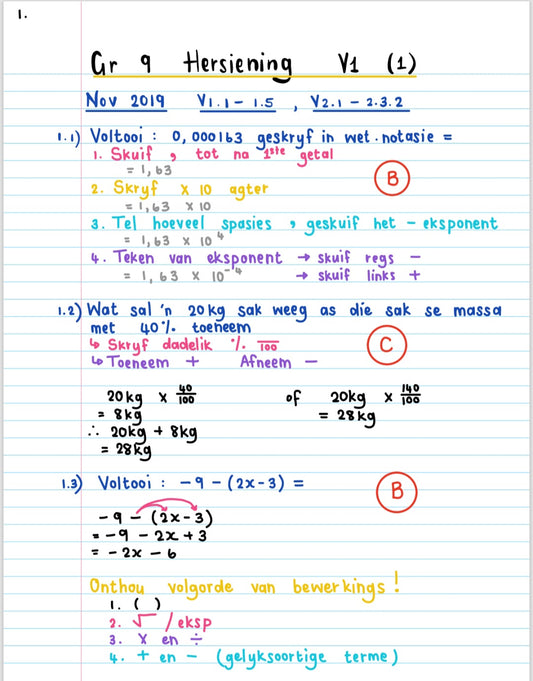 1.
Gr 9 Hersiening V1 (1)
Nov 2019 V1.1 - 1.5 , V2.1 - 2.3.2
1.1) Voltooi : 0,000163 geskryf in wet.notasie =
1. Skuif , tot na 1ste getal
= 1,63
B
2. Skryf × 10 agter
= 1,63 × 10
3. Tel hoeveel spasies , geskuif het - eksponent
= 1,63 × 10⁴
4. Teken van eksponent → skuif regs -
= 1,63 × 10⁻⁴ → skuif links +
1.2) Wat sal 'n 20kg sak weeg as die sak se massa
met 40% toeneem
↳ Skryf dadelik % /100
C
↳ Toeneem + Afneem -
20kg × 40/100 of 20kg × 140/100
= 8kg = 28kg
∴ 20kg + 8kg
= 28kg
1.3) Voltooi : -9 - (2x - 3) =
B
-9 - (2x - 3)
= -9 - 2x + 3
= -2x - 6
Onthou volgorde van bewerkings !
1. ( )
2. √ / eksp
3. × en ÷
4. + en - (gelyksoortige terme)